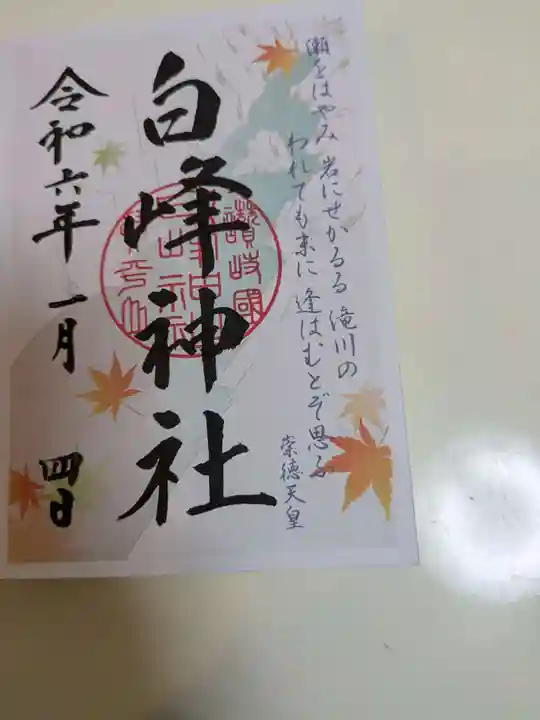 瀬をはやみ 岩にせかるる 滝川の
われても末に 逢はむとぞ思ふ
崇徳天皇
白峰神社
讃岐國
令和六年 一月 四日